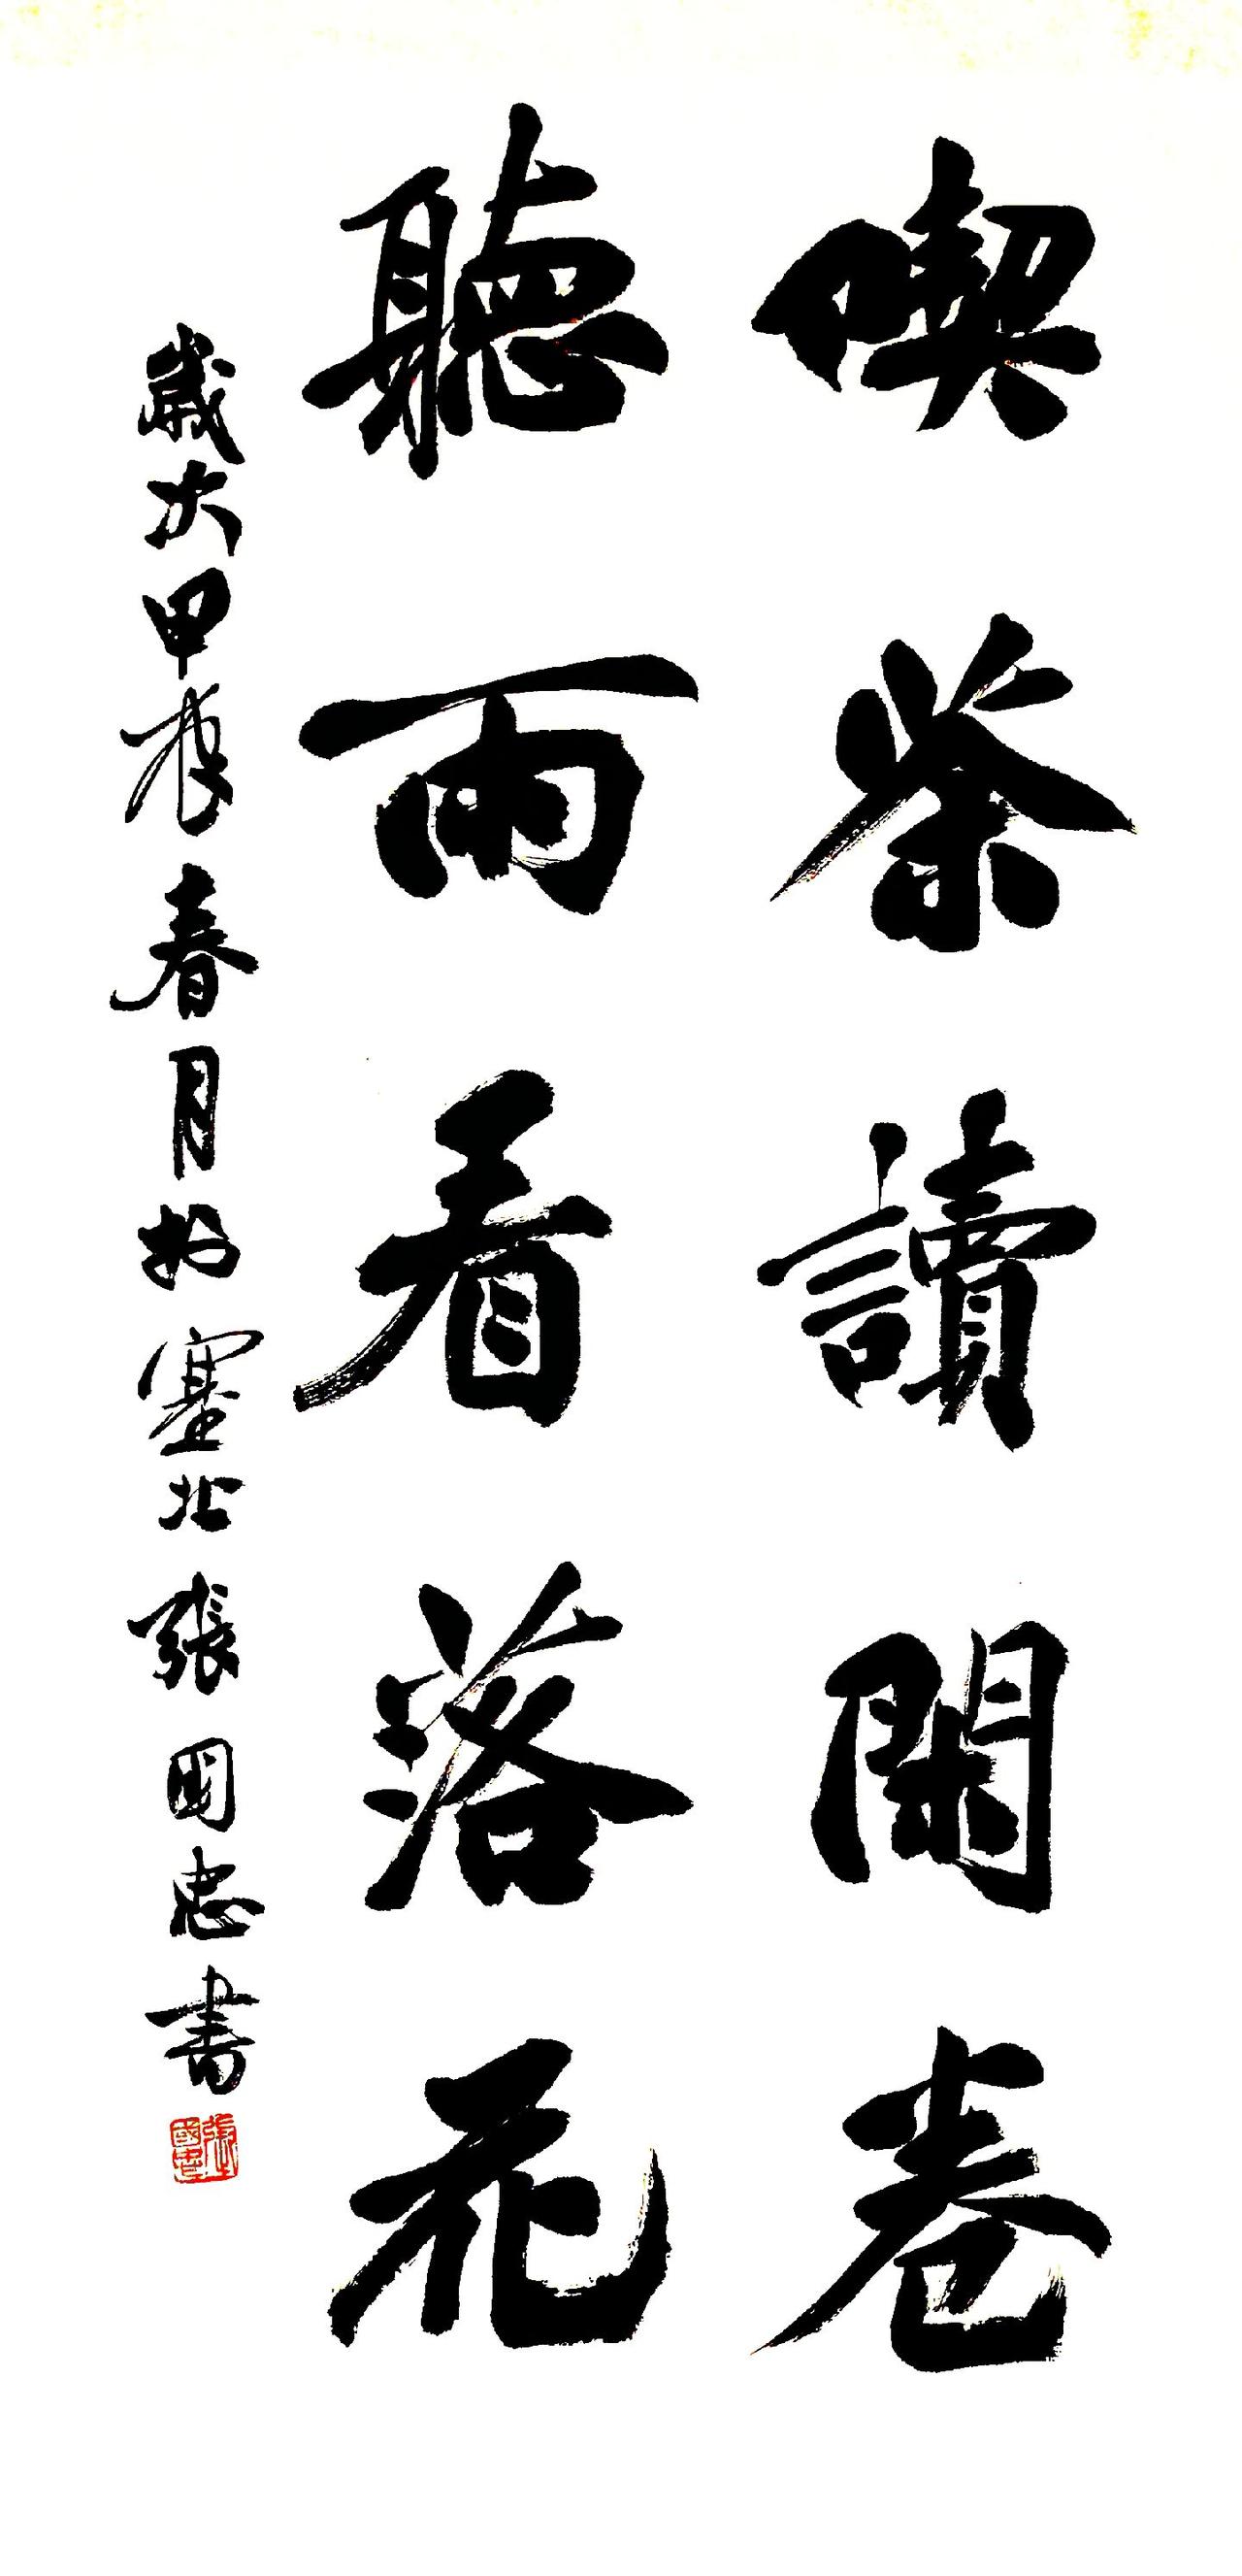 喫茶讀閑卷
聽雨看落花
歲次甲辰春月於塞北張國忠書
張國忠